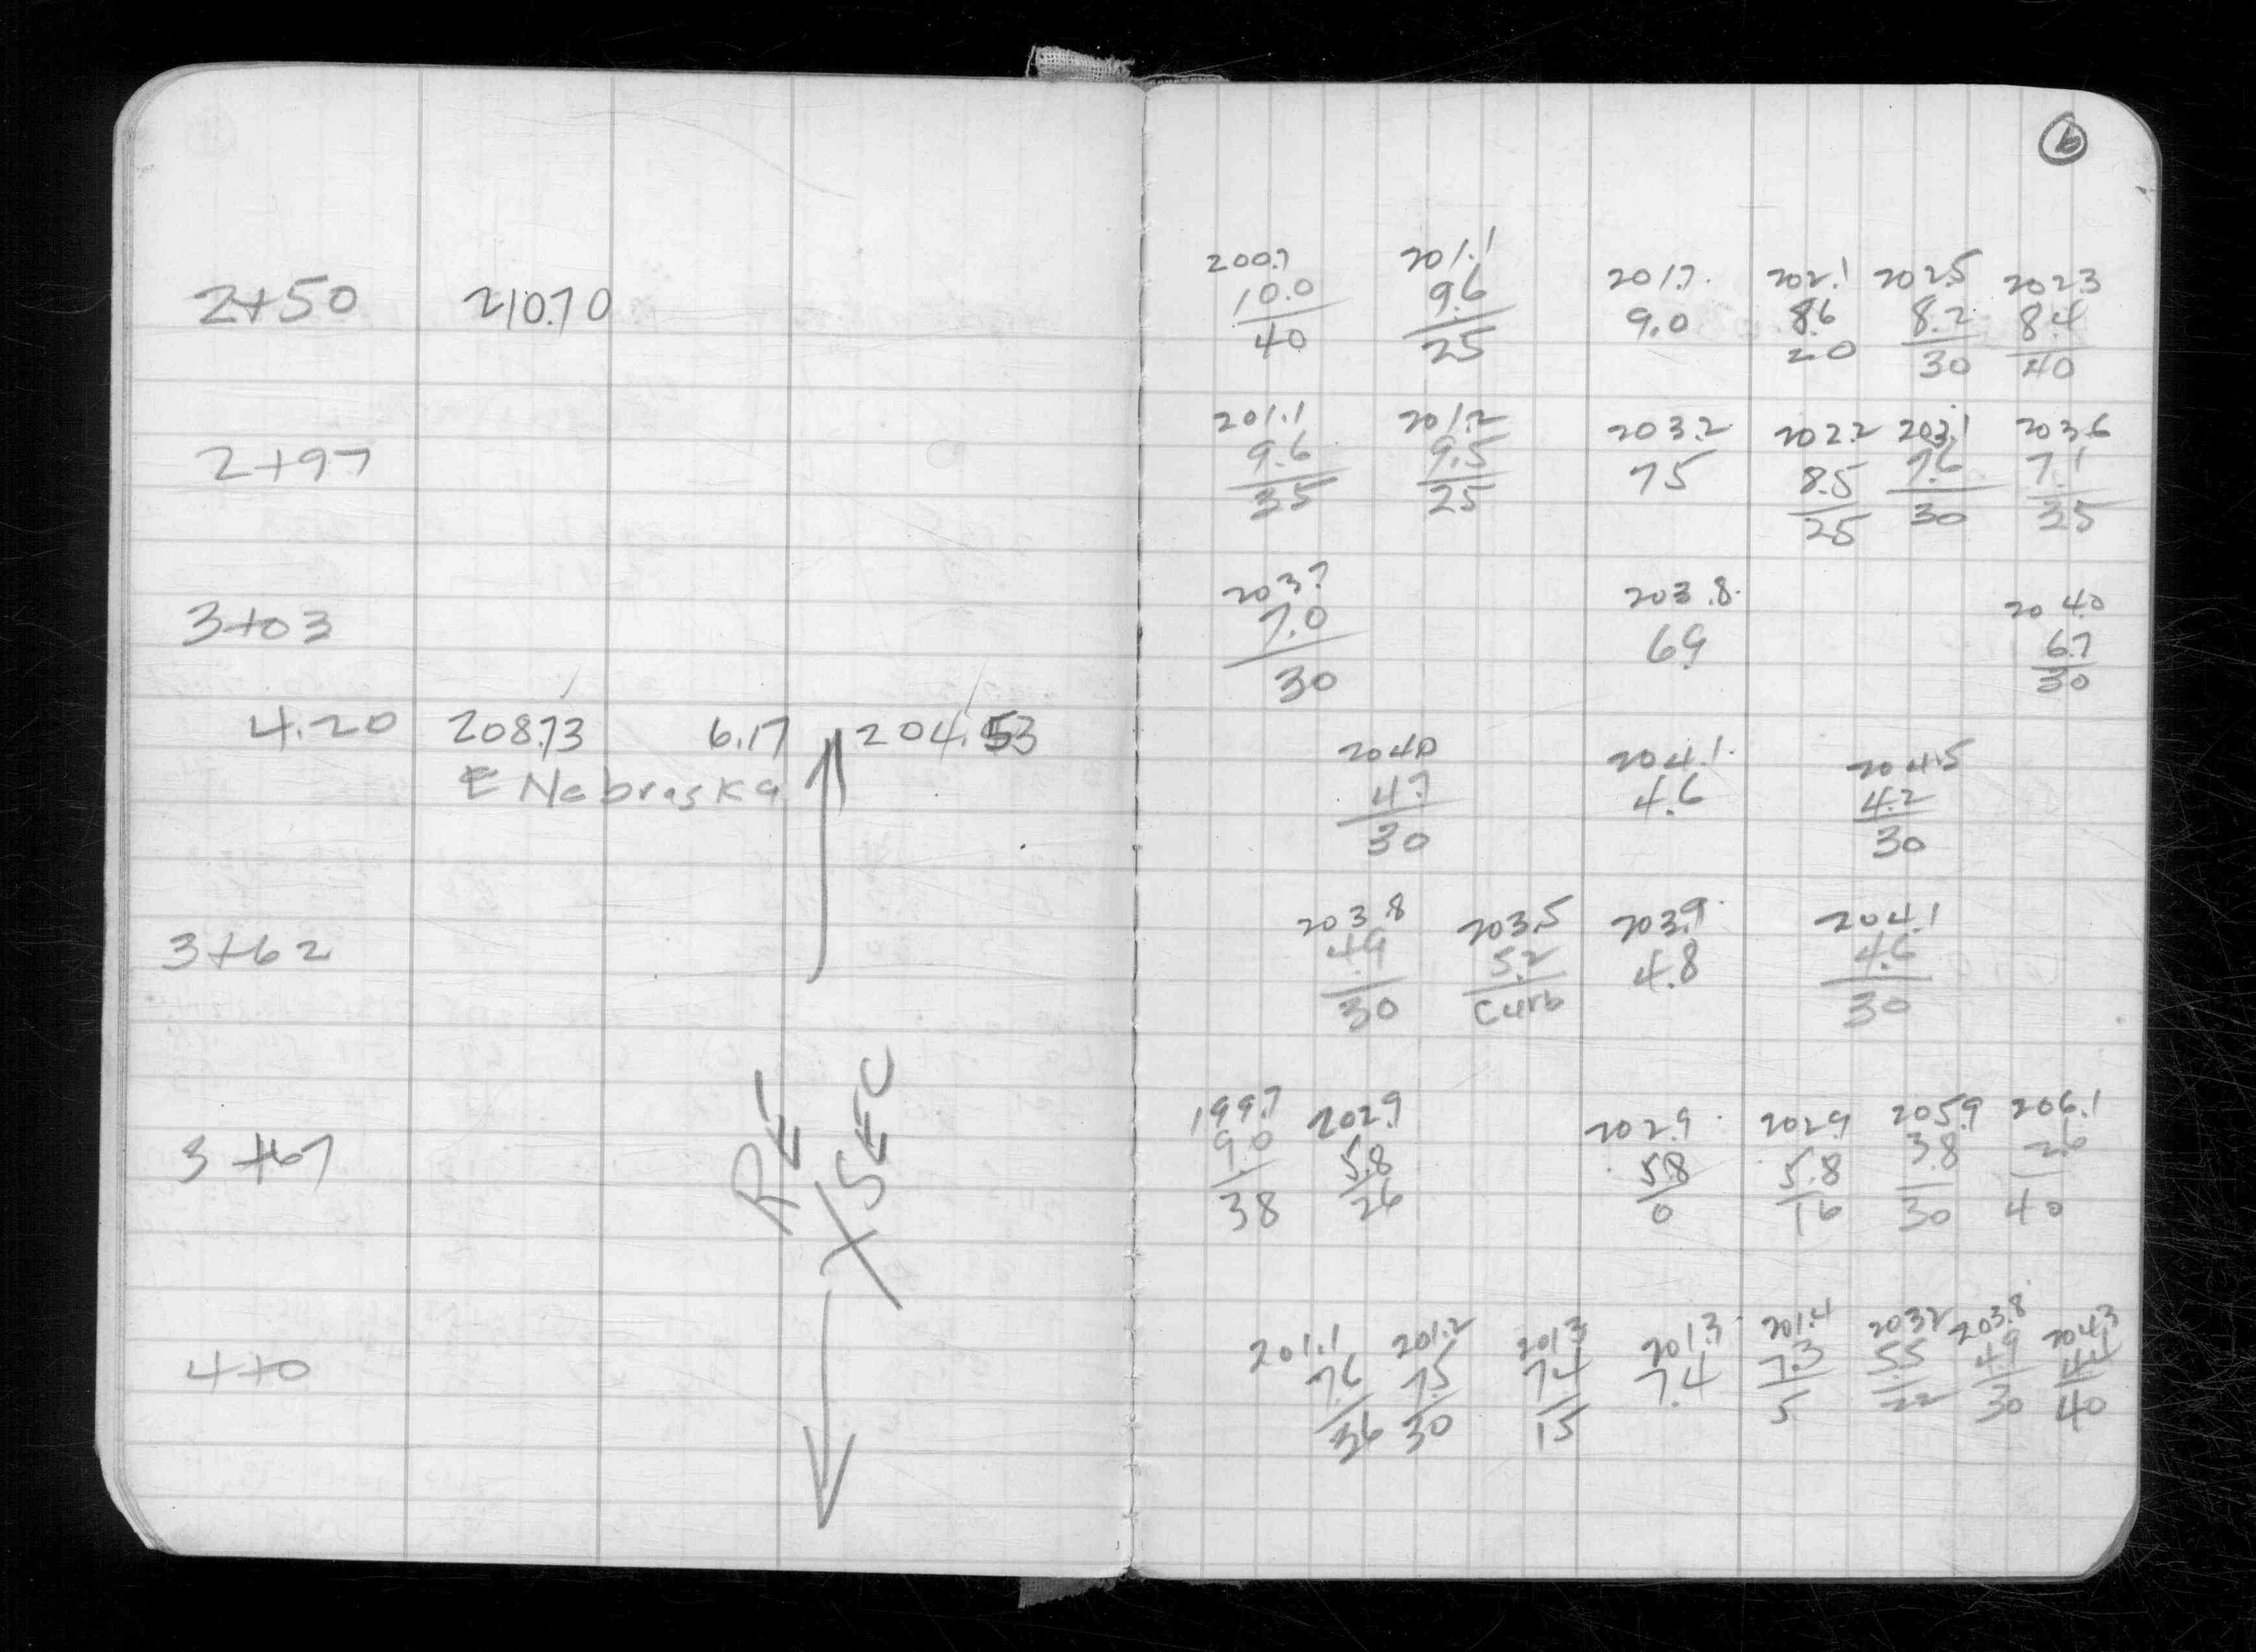 6
200.7 201.1
2+50 210.70 10.0 9.6 201.7 202.1 202.5 202.3
40 25 9.0 8.6 8.2 8.4
20 30 40
201.1 201.2 203.2 202.2 203.1 203.6
2+97 9.6 9.5 75 8.5 7.6 7.1
35 25 25 30 35
203.7 203.8 204.0
3+03 7.0 69 6.7
30 30
4.20 208.73 6.17 204.53 204.0 204.1 204.5
E Nebraska 4.7 4.6 4.2
30 30
203.8 203.5 203.9 204.1
3+62 4.9 5.2 4.8 4.6
30 Curb 30
RE
XSEC
199.7 202.9 202.9 202.9 205.9 206.1
3+67 9.0 5.8 5.8 5.8 3.8 2.6
38 26 0 16 30 40
201.1 201.2 201.3 201.3 201.4 203.2 203.8 204.3
4+0 7.6 7.5 7.4 7.4 7.3 5.5 4.9 4.4
36 30 15 5 22 30 40